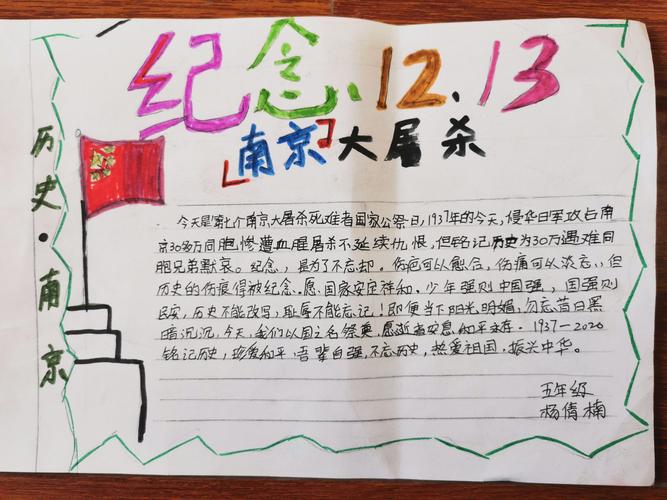 纪念、12.13
「南京」大屠杀
历史·南京
今天是第七个南京大屠杀死难者国家公祭日,1937年的今天,侵华日军攻占南
京30多万同胞惨遭血腥屠杀不延续仇恨,但铭记历史为30万遇难同
胞兄弟默哀。纪念,是为了不忘却。伤疤可以愈合,伤痛可以淡忘,但
历史的伤痕得被纪念.愿国家安定祥和、少年强则中国强,国强则
民安,历史不能改写,耻辱不能忘记!即便当下阳光明媚,勿忘昔日黑
暗沉沉,今天,我们以国之名祭奠,愿逝者安息和平永存.1937—2020
铭记历史,珍爱和平,吾辈自强,不忘历史,热爱祖国,振兴中华。
五年级
杨倩楠